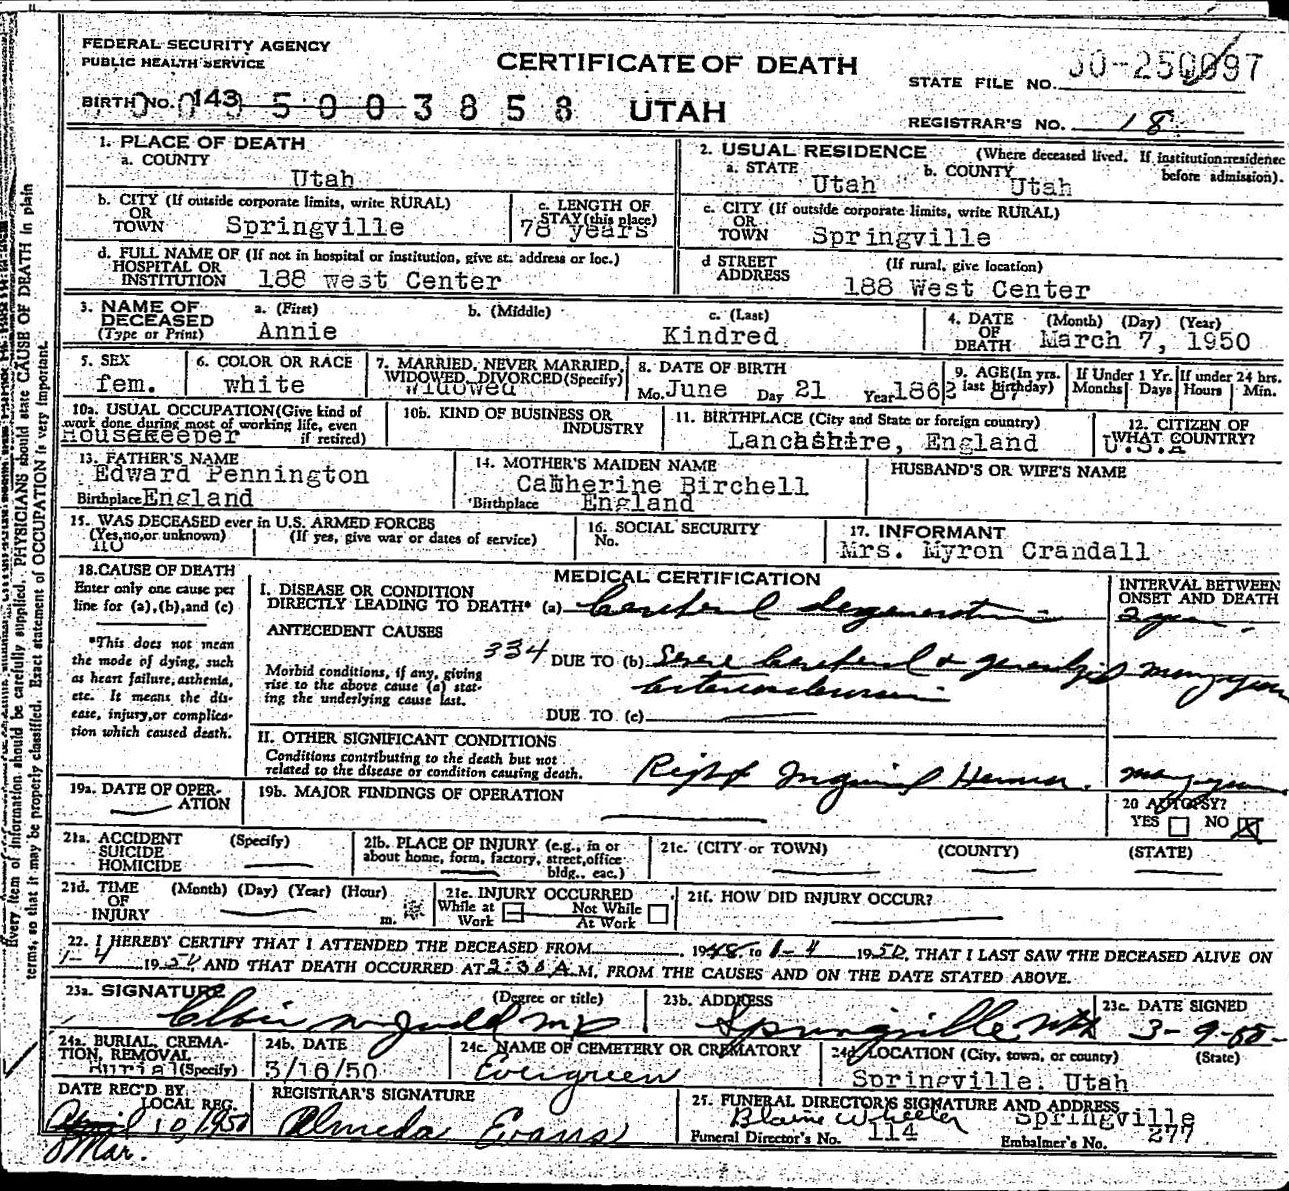 FEDERAL SECURITY AGENCY
PUBLIC HEALTH SERVICE
CERTIFICATE OF DEATH
STATE FILE NO.
BIRTH NO. 143 5003858
UTAH
REGISTRAR'S NO. 18
1. PLACE OF DEATH
a. COUNTY
Utah
2. USUAL RESIDENCE (Where deceased lived. If institution: residence before admission).
a. STATE Utah b. COUNTY Utah
b. CITY (If outside corporate limits, write RURAL)
OR
TOWN Springville
c. LENGTH OF
STAY (this place)
78 years
c. CITY (If outside corporate limits, write RURAL)
OR
TOWN Springville
d. FULL NAME OF (If not in hospital or institution, give st. address or loc.)
HOSPITAL OR
INSTITUTION 188 west Center
d STREET (If rural, give location)
ADDRESS 188 West Center
3. NAME OF
DECEASED
(Type or Print)
a. (First) b. (Middle) c. (Last)
Annie Kindred
4. DATE (Month) (Day) (Year)
OF
DEATH March 7, 1950
5. SEX
fem.
6. COLOR OR RACE
white
7. MARRIED, NEVER MARRIED,
WIDOWED, DIVORCED (Specify)
Widowed
8. DATE OF BIRTH
Mo. June Day 21 Year 1862
9. AGE (In yrs.
last birthday)
87
If Under 1 Yr.
Months Days
If under 24 hrs.
Hours Min.
10a. USUAL OCCUPATION (Give kind of
work done during most of working life, even
if retired)
Housekeeper
10b. KIND OF BUSINESS OR
INDUSTRY
11. BIRTHPLACE (City and State or foreign country)
Lancashire, England
12. CITIZEN OF
WHAT COUNTRY?
U.S.A
13. FATHER'S NAME
Edward Pennington
Birthplace England
14. MOTHER'S MAIDEN NAME
Catherine Birchell
Birthplace England
HUSBAND'S OR WIFE'S NAME
15. WAS DECEASED ever in U.S. ARMED FORCES
(Yes, no, or unknown) (If yes, give war or dates of service)
no
16. SOCIAL SECURITY
No.
17. INFORMANT
Mrs. Myron Crandall
18. CAUSE OF DEATH
Enter only one cause per
line for (a), (b), and (c)
*This does not mean
the mode of dying, such
as heart failure, asthenia,
etc. It means the dis-
ease, injury, or complica-
tion which caused death.
MEDICAL CERTIFICATION
I. DISEASE OR CONDITION
DIRECTLY LEADING TO DEATH* (a) Cerebral degeneration
INTERVAL BETWEEN
ONSET AND DEATH
2 years
ANTECEDENT CAUSES
334
Morbid conditions, if any, giving
rise to the above cause (a) stat-
ing the underlying cause last.
DUE TO (b) Severe Cerebral & generalized many years
Arteriosclerosis
DUE TO (c)
II. OTHER SIGNIFICANT CONDITIONS
Conditions contributing to the death but not
related to the disease or condition causing death.
Right Inguinal Hernia. many years
19a. DATE OF OPER-
ATION
19b. MAJOR FINDINGS OF OPERATION
20 AUTOPSY?
YES NO
21a. ACCIDENT (Specify)
SUICIDE
HOMICIDE
21b. PLACE OF INJURY (e.g., in or
about home, form, factory, street, office
bldg., eac.)
21c. (CITY or TOWN) (COUNTY) (STATE)
21d. TIME (Month) (Day) (Year) (Hour)
OF
INJURY m.
21e. INJURY OCCURRED
While at Not While
Work At Work
21f. HOW DID INJURY OCCUR?
22. I HEREBY CERTIFY THAT I ATTENDED THE DECEASED FROM 1948, to 1-4 1950, THAT I LAST SAW THE DECEASED ALIVE ON
1-4 1950, AND THAT DEATH OCCURRED AT 2:30 A.M. FROM THE CAUSES AND ON THE DATE STATED ABOVE.
23a. SIGNATURE (Degree or title)
Judd MD
23b. ADDRESS
Springville Utah
23c. DATE SIGNED
3-9-50
24a. BURIAL, CREMA-
TION, REMOVAL
Burial (Specify)
24b. DATE
3/10/50
24c. NAME OF CEMETERY OR CREMATORY
Evergreen
24d. LOCATION (City, town, or county) (State)
Springville, Utah
DATE REC'D BY
LOCAL REG.
April 10, 1950
Mar.
REGISTRAR'S SIGNATURE
Almeda Evans
25. FUNERAL DIRECTOR'S SIGNATURE AND ADDRESS
Blaine Wheeler Springville
Funeral Director's No. 114 Embalmer's No. 277
Every item of information should be carefully supplied. PHYSICIANS should state CAUSE OF DEATH in plain
terms, so that it may be properly classified. Exact statement of OCCUPATION is very important.